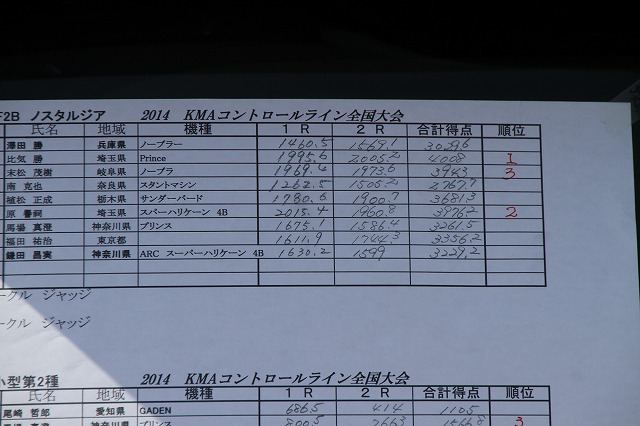 F2B ノスタルジア 2014 KMAコントロールライン全国大会
氏名 地域 機種 1 R 2 R 合計得点 順位
澤田 勝 兵庫県 ノーブラー 1460.5 1569.1 3029.6
比気 勝 埼玉県 Prince 1995.6 2005.2 4008 1
末松 茂樹 岐阜県 ノーブラ 1969.4 1973.6 3943 3
南 克也 奈良県 スタントマシン 1262.5 1505.2 2767.7
植松 正成 栃木県 サンダーバード 1780.6 1900.7 3681.3
原 善嗣 埼玉県 スパーハリケーン 4B 2015.4 1960.8 3976.2 2
馬場 真澄 神奈川県 プリンス 1675.1 1586.4 3261.5
福田 祐治 東京都 1611.9 1744.3 3356.2
鎌田 昌実 神奈川県 ARC スーパーハリケーン 4B 1630.2 1599 3229.2
ークル ジャッジ
ークル ジャッジ
小型第2種 2014 KMAコントロールライン全国大会
氏名 地域 機種 1 R 2 R 合計得点 順位
尾崎 哲郎 愛知県 GADEN 686.5 414 1105
真澄 神奈川県 プリンス 800.5 1566.8 3